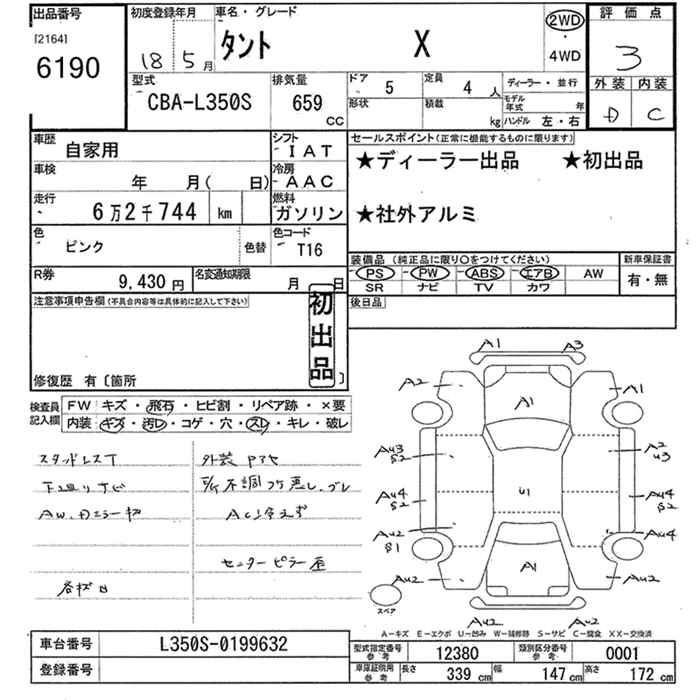 出品番号
[2164]
6190
初度登録年月
18 5月
車名・グレード
タント X
2WD
・
4WD
評価点
3
外装 内装
D C
型式
CBA-L350S
排気量
659 CC
ドア 5
定員 4 人
ディーラー・並行
形状
積載 kg
モデル年式 年
ハンドル 左・右
車歴 自家用
シフト IAT
車検 年 月( 日)
冷房 AAC
走行 6万2千744 km
燃料 ガソリン
色 ピンク 色替
色コード T16
R券 9,430 円
名変通知期限 月 日
セールスポイント(正常に機能するものに限ります)
★ディーラー出品 ★初出品
★社外アルミ
装備品 (純正品に限り○をつけてください)
新車保証書
PS PW ABS エアB AW
SR ナビ TV カワ
有・無
後日品
注意事項申告欄(不具合内容等は具体的に記入して下さい)
初出品
修復歴 有〔箇所 〕
検査員記入欄
FW キズ・飛石・ヒビ割・リペア跡・×要
内装 キズ・汚レ・コゲ・穴・スレ・キレ・破レ
AC冷えず
センターピラー
A1 A3
A2 A1 A1
Au3 S2
A2 u3
Au4 S2
U1
Au4 S2
Au2 S1
Au2
Au2 A1 Au2
スペア
Au2 Au2
A-キズ E-エクボ U-凹み W-補修跡 S-サビ C-腐食 XX-交換済
車台番号 L350S-0199632
登録番号
型式指定番号 参考 12380
類別区分番号 参考 0001
車庫証明用 参考 長さ 339 cm 幅 147 cm 高さ 172 cm